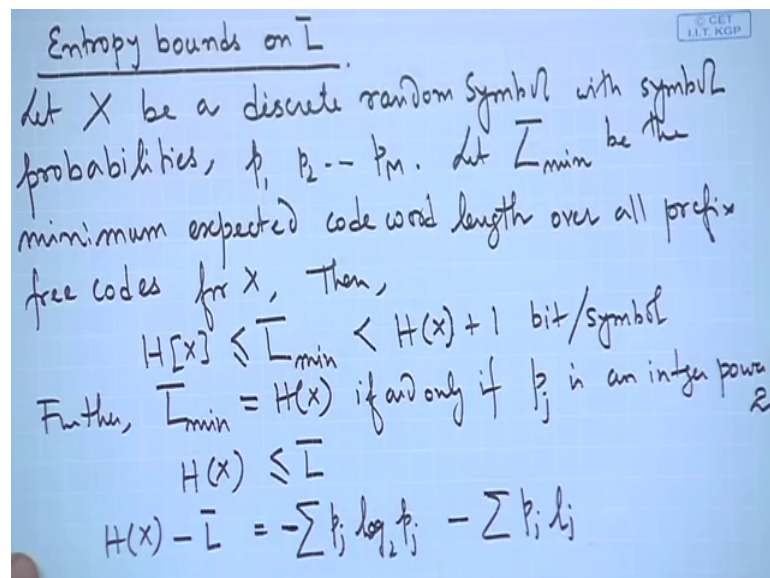 Entropy bounds on L̄
© CET
I.I.T. KGP
Let X be a discrete random symbol with symbol
probabilities, p₁ p₂ -- p_M. Let L̄_min be the
minimum expected code word length over all prefix
free codes for X, Then,
H[X] ≤ L̄_min < H(X) + 1 bit/symbol
Further, L̄_min = H(X) if and only if p_j is an integer power
2
H(X) ≤ L̄
H(X) - L̄ = -∑ p_j log₂ p_j - ∑ p_j l_j